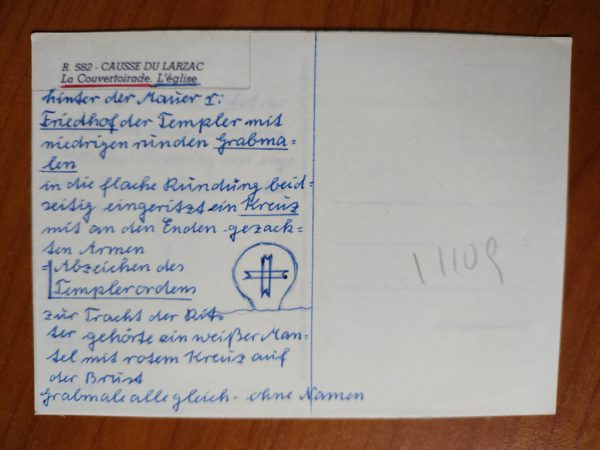 R. 582 - CAUSSE DU LARZAC
La Couvertoirade. L'église
hinter der Mauer r:
Friedhof der Templer mit
niedrigen runden Grabma=
len
in die flache Rundung beid=
seitig eingeritzt ein Kreuz
mit an den Enden gezack=
ten Armen
= Abzeichen des
Templerordens
zur Tracht der Rit=
ter gehörte ein weißer Man=
tel mit rotem Kreuz auf
der Brust
Grabmale alle gleich - ohne Namen
11109